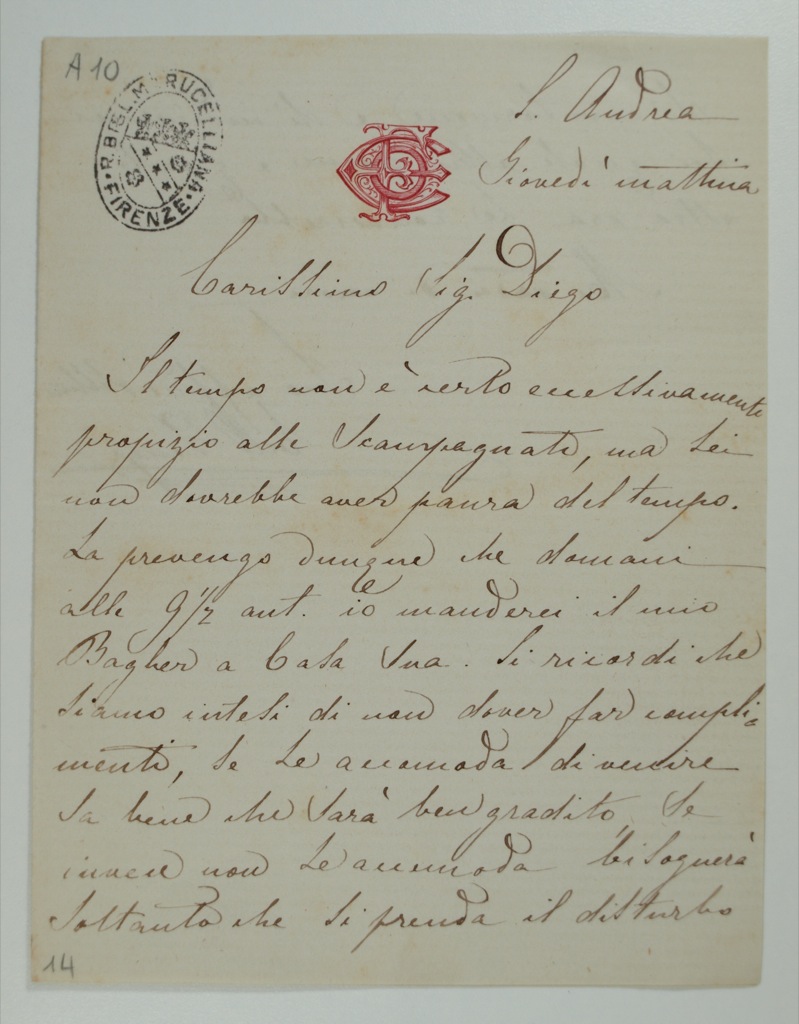 A 10
R. BIBL. MARUCELLIANA · FIRENZE ·
S. Andrea
Giovedì mattina
Carissimo Sig. Diego
Il tempo non è certo eccessivamente
propizio alle Scampagnate, ma Lei
non dovrebbe aver paura del tempo.
La prevengo dunque che domani
alle 9 1/2 ant. io manderei il mio
Bagher a Casa Sua. Si ricordi che
siamo intesi di non dover far compli-
menti, se Le accomoda di venire
Sa bene che Sarà ben gradito, Se
invece non Le accomoda bisognerà
Soltanto che Si prenda il disturbo
14